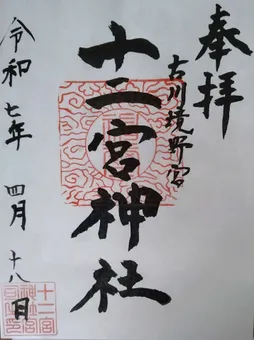 奉拝
古川境野宮
十二宮神社
令和七年四月十八日
十二宮